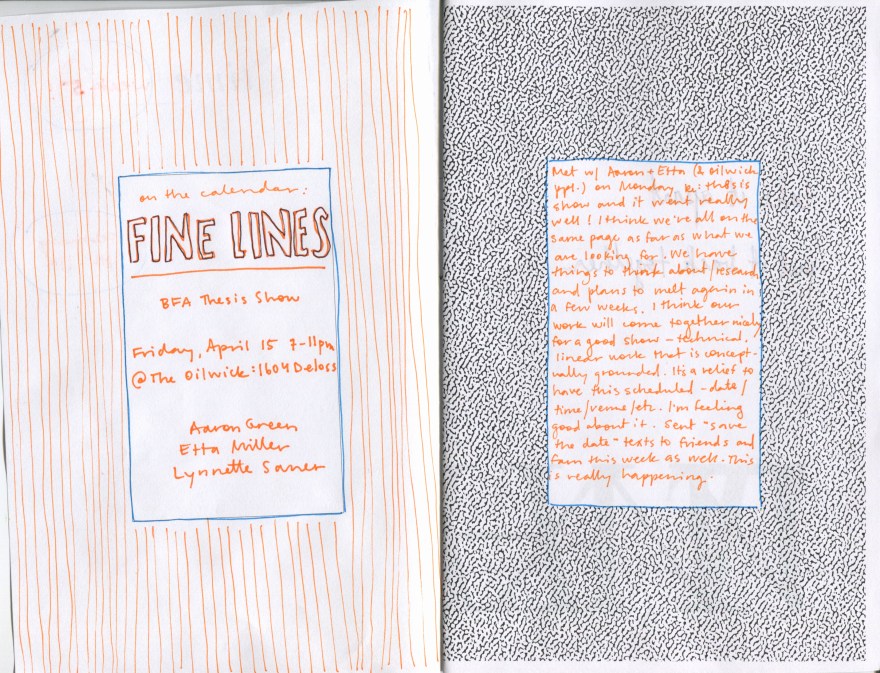 on the calendar:
FINE LINES
BFA Thesis Show
Friday, April 15 7-11pm
@The Oilwick: 1604 Deloss
Aaron Green
Etta Miller
Lynnette Saner
Met w/ Aaron + Etta (& Oilwick
ppl.) on Monday re: thesis
show and it went really
well! I think we're all on the
same page as far as what we
are looking for. We have
things to think about/research
and plans to meet again in
a few weeks. I think our
work will come together nicely
for a good show - technical,
linear work that is concept-
ually grounded. It's a relief to
have this scheduled - date/
time/venue/etc. I'm feeling
good about it. Sent "save
the date" texts to friends and
fam this week as well. This
is really happening.